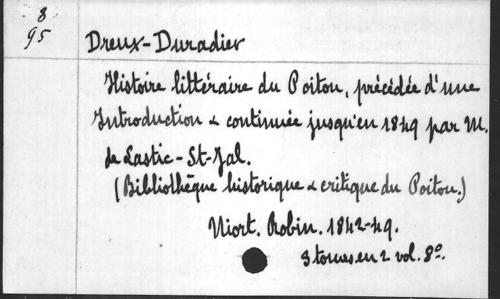 8
95
Dreux-Duradier
Histoire littéraire du Poitou, précédée d'une
Introduction & continuée jusqu'en 1849 par M.
de Lastic-St-Jal.
(Bibliothèque historique & critique du Poitou.)
Niort. Robin. 1842-49.
3 tomes en 2 vol. 8º.